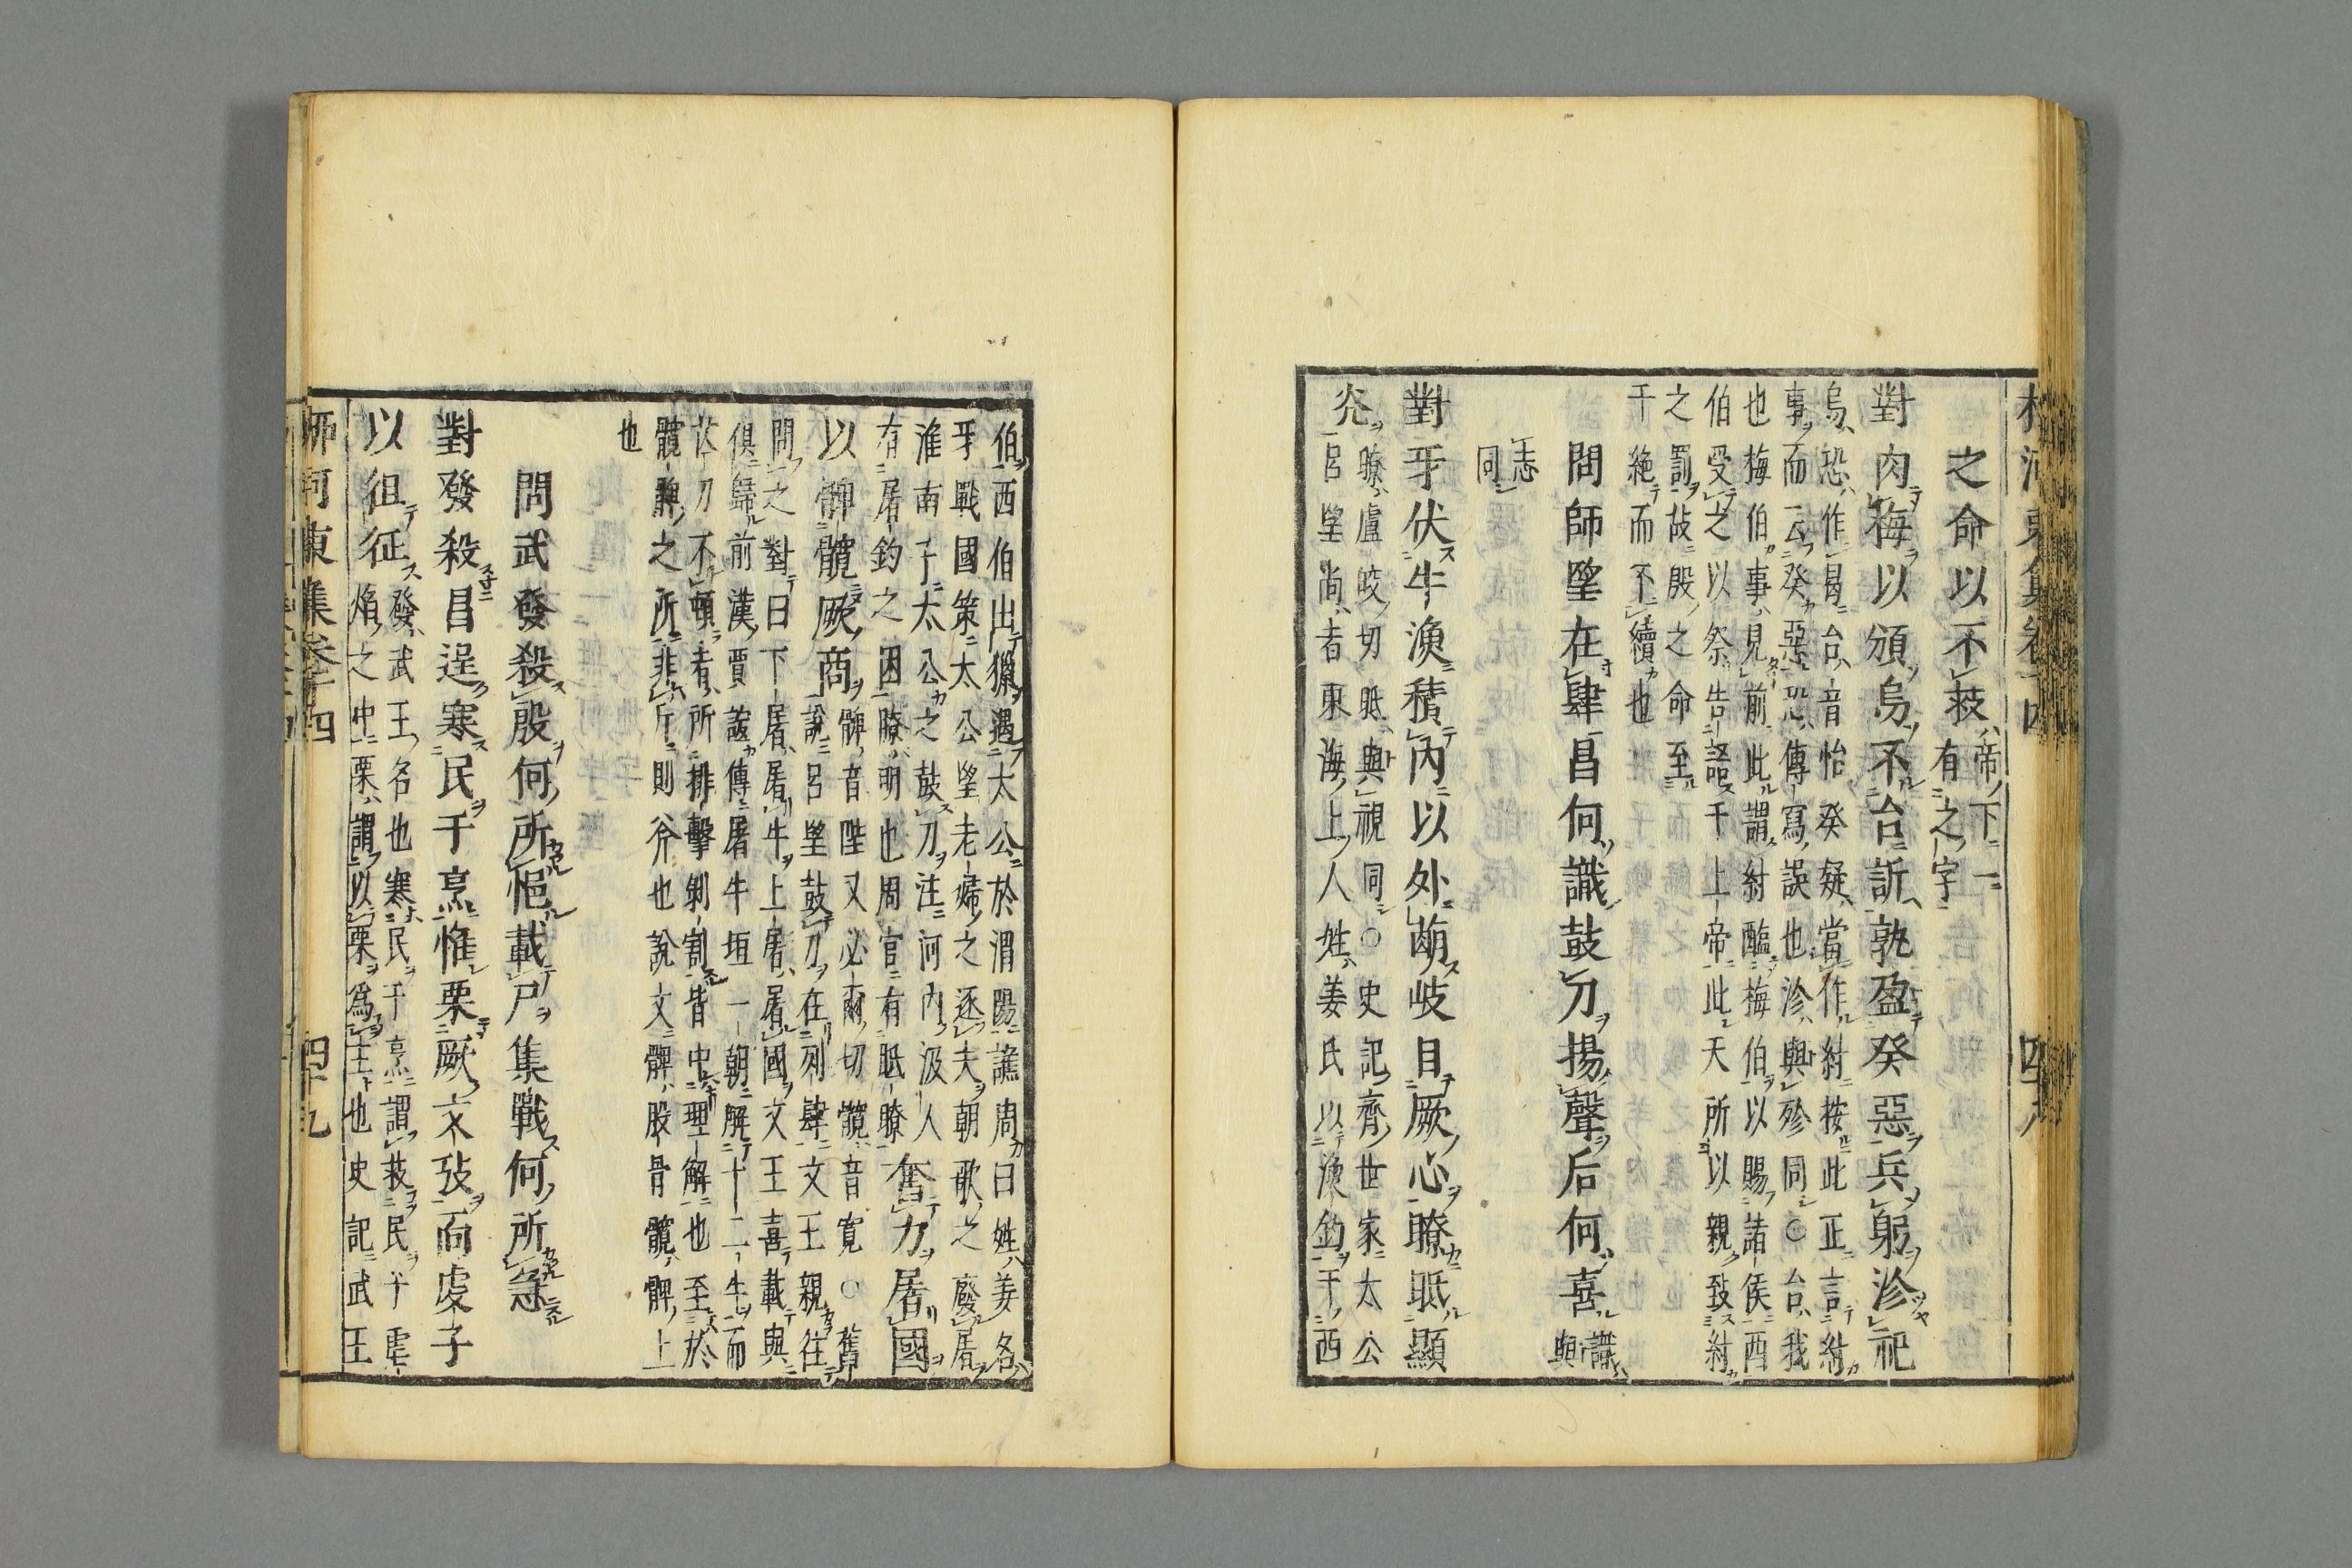 之命以不救
帝ノ下ニ一ニ
有之字
對肉梅以頒烏不台訴孰盈癸惡兵躬殄祀
烏恐作曷台音怡癸疑當作紂按此正言紂
事而云癸惡恐傳寫誤也沴與殄同○台我
也梅伯事見前此謂紂醢梅伯以賜諸侯西
伯受之以祭告語于上帝此天所以親致紂
之罰故殷之命至
于絶而不續也
問師望在肆昌何識鼓刀揚聲后何喜
識與
志同
對牙伏牛漁積內以外萌岐目厥心瞭眡顯
光
瞭盧皎切眡與視同○史記齊世家太公
呂望尚者東海上人姓姜氏以漁釣干西
伯西伯出獵遇太公於渭陽譙周曰姓姜名
牙戰國策太公望老婦之逐夫朝歌之廢屠
淮南子太公之鼓刀注河內汲人
有屠釣之困瞭明也周官有眡瞭
奮力屠國
以髀髖厥商
髀音陛又必爾切髖音寬○舊
說呂望鼓刀在列肆文王親往
問之對曰下屠屠牛上屠屠國文王喜載與
俱歸前漢賈誼傳屠牛垣一朝解十二牛而
芒刃不頓者所排擊剝割皆中理解也至於
髖髀之所非斤則斧也說文髀股骨髖髀上
也
問武發殺殷何所悒載尸集戰何所急
對發殺昌逞寒民于烹惟栗厥文攷而虔子
以徂征
發武王名也寒民于烹謂救民于虐
焰之中栗謂以栗爲主也史記武王
柳河東集卷十四
四十九